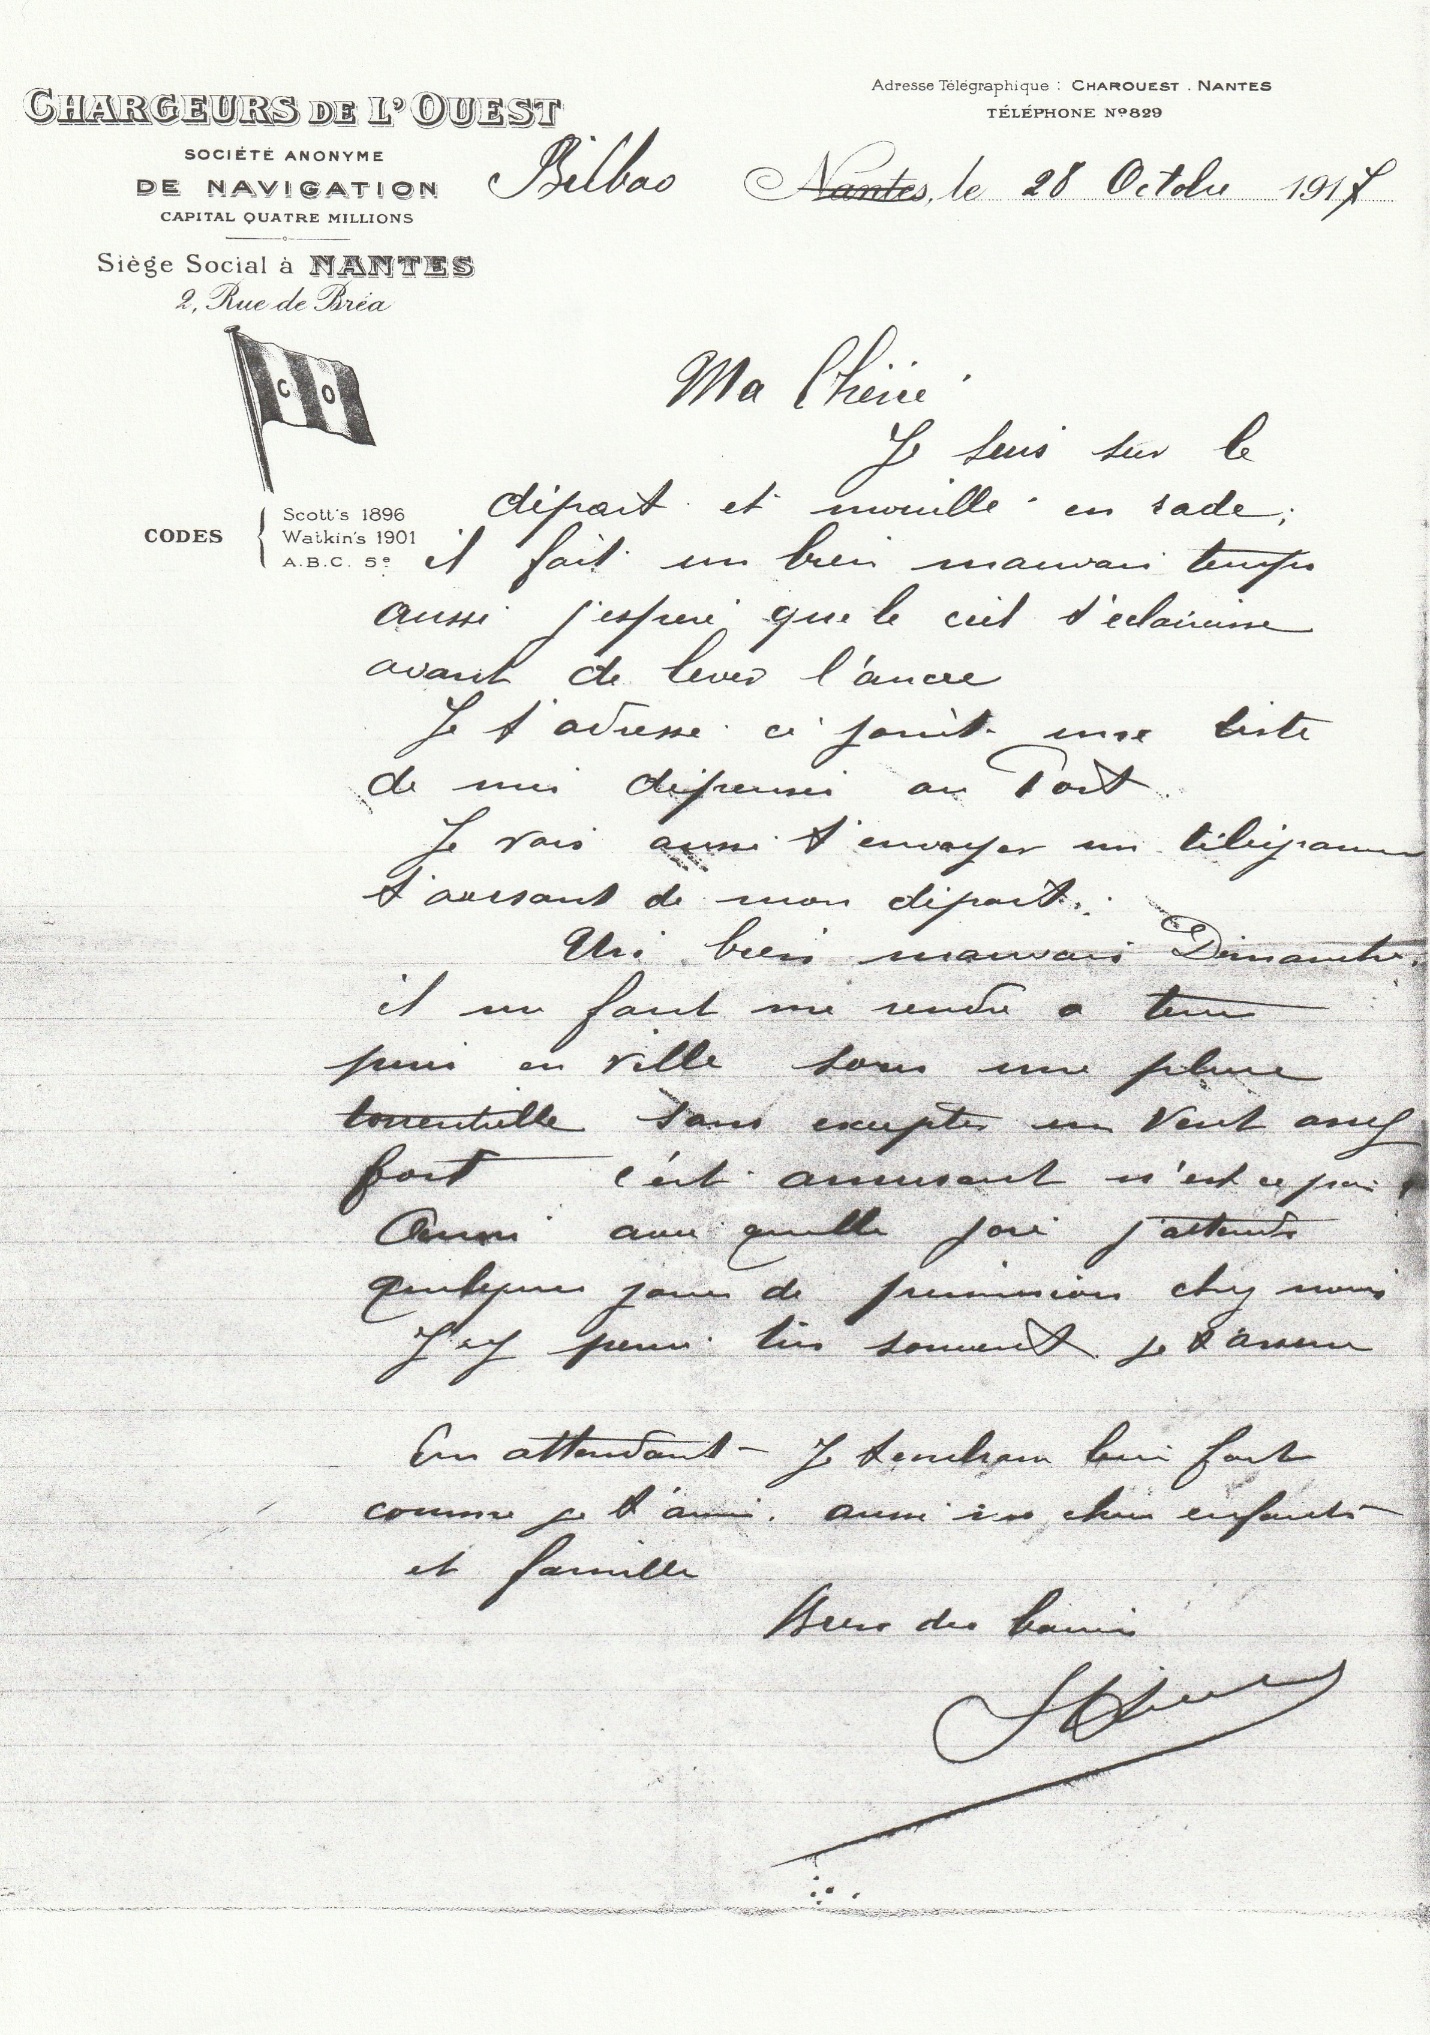 CHARGEURS DE L'OUEST
SOCIÉTÉ ANONYME
DE NAVIGATION
CAPITAL QUATRE MILLIONS
Siège Social à NANTES
2, Rue de Bréa
C O
CODES
Scott's 1896
Watkin's 1901
A.B.C. 5e
Adresse Télégraphique : CHAROUEST . NANTES
TÉLÉPHONE No 829
Bilbao Nantes, le 28 Octobre 1917
Ma Chérie
Je suis sur le
départ et mouillé en rade ;
il fait un bien mauvais temps
aussi j'espere que le ciel s'eclaircisse
avant de lever l'ancre
Je t'adresse ci joint une liste
de mes dépenses au Port.
Je vais aussi t'envoyer un télégramme
t'avisant de mon départ.
Un bien mauvais Dimanche.
il me faut me rendre a terre
puis en ville sous une pluie
torrentielle sans excepter un Vent assez
fort c'est amusant n'est ce pas ?
Aussi avec quelle joie j'attends
quelques jours de permission chez nous
J'y pense très souvent je t'assure
En attendant Je t'embrasse bien fort
comme je t'aime. aussi nos chers enfants
et famille